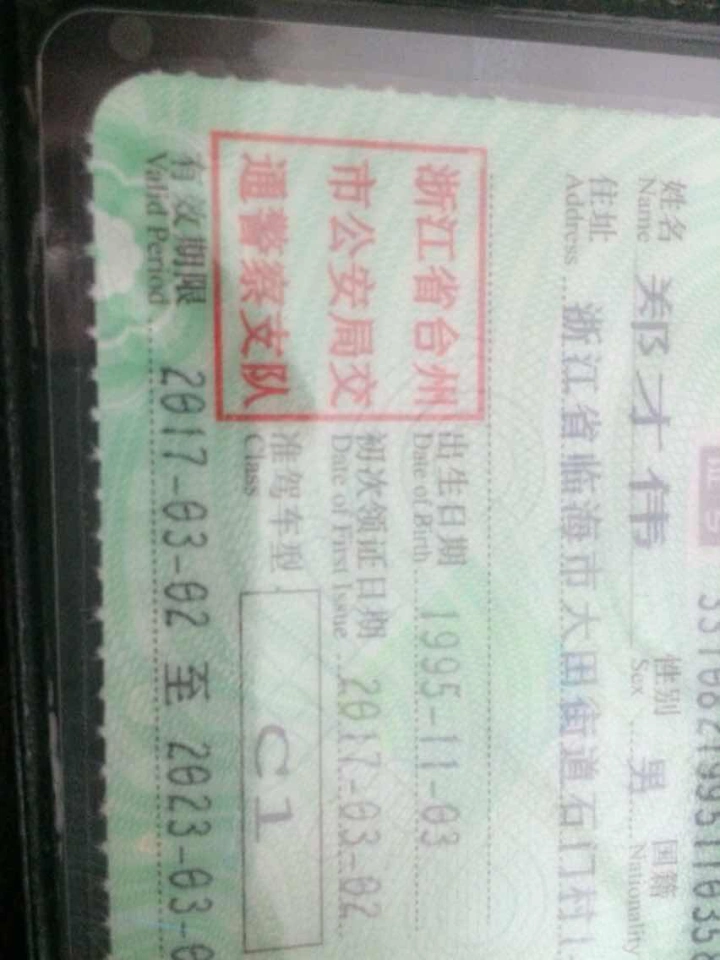 证号 3310821995110358
姓名 郑才伟 性别 男 国籍
Name Sex Nationality
住址 浙江省临海市大田街道石门村1-
Address
浙江省台州
市公安局交
通警察支队
出生日期 1995-11-03
Date of Birth
初次领证日期 2017-03-02
Date of First Issue
准驾车型 C1
Class
有效期限 2017-03-02 至 2023-03-0
Valid Period